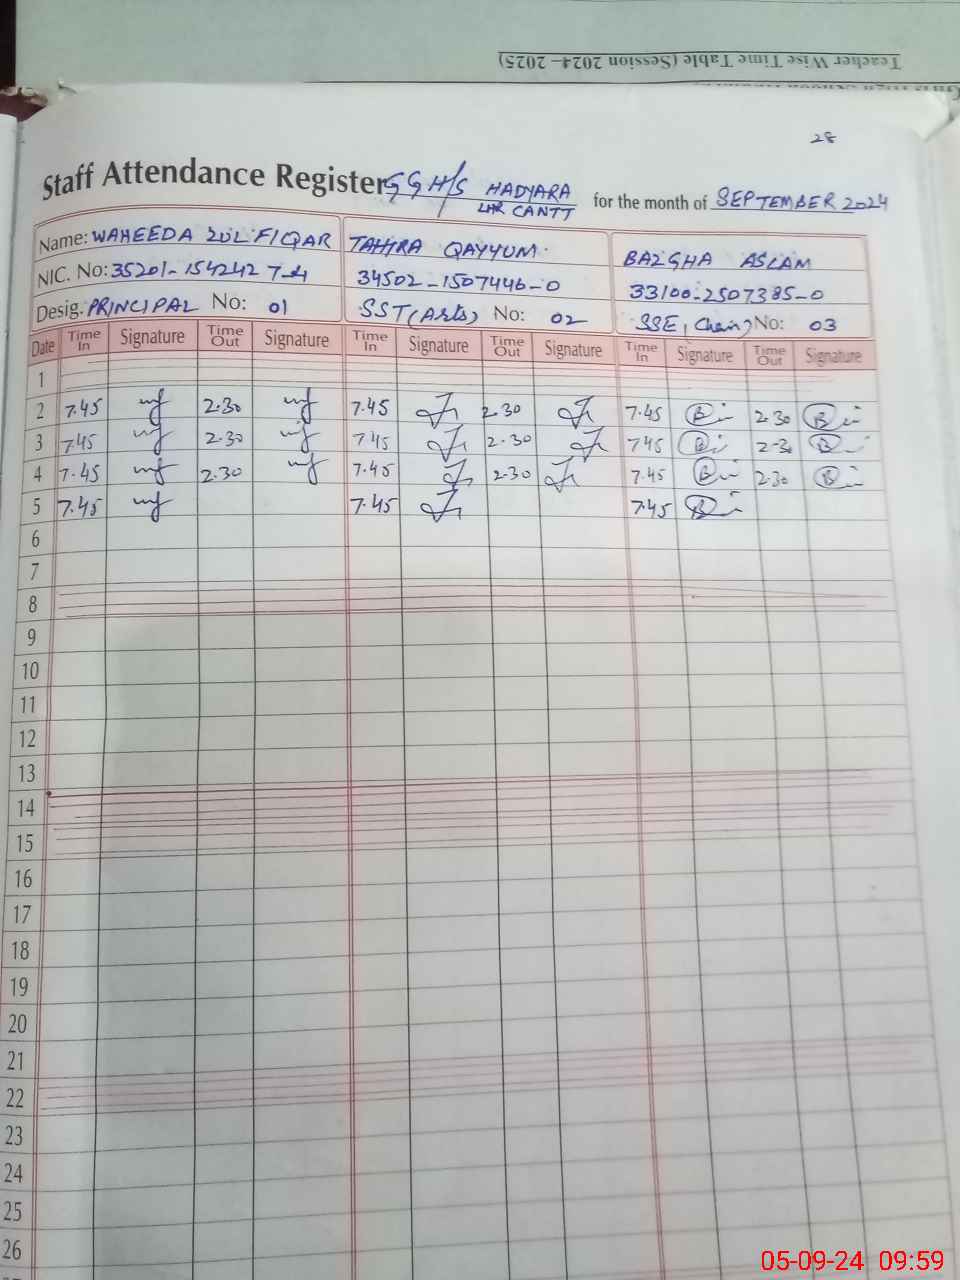 Teacher Wise Time Table (Session 2024-2025)
28
Staff Attendance Register GGH/S HADYARA LHR CANTT for the month of SEPTEMBER 2024
Name: WAHEEDA ZULFIQAR TAHIRA QAYYUM BAZGHA ASLAM
NIC. No: 35201-1542427-4 34502-1507446-0 33100-2507385-0
Desig. PRINCIPAL No: 01 SST (Arts) No: 02 SSE, No: 03
Date Time In Signature Time Out Signature Time In Signature Time Out Signature Time In Signature Time Out Signature
1
2 7.45 2.30 7.45 2.30 7.45 2.30
3 7.45 2.30 7.45 2.30 7.45 2.30
4 7.45 2.30 7.45 2.30 7.45 2.30
5 7.45 7.45 7.45
6
7
8
9
10
11
12
13
14
15
16
17
18
19
20
21
22
23
24
25
26
05-09-24 09:59